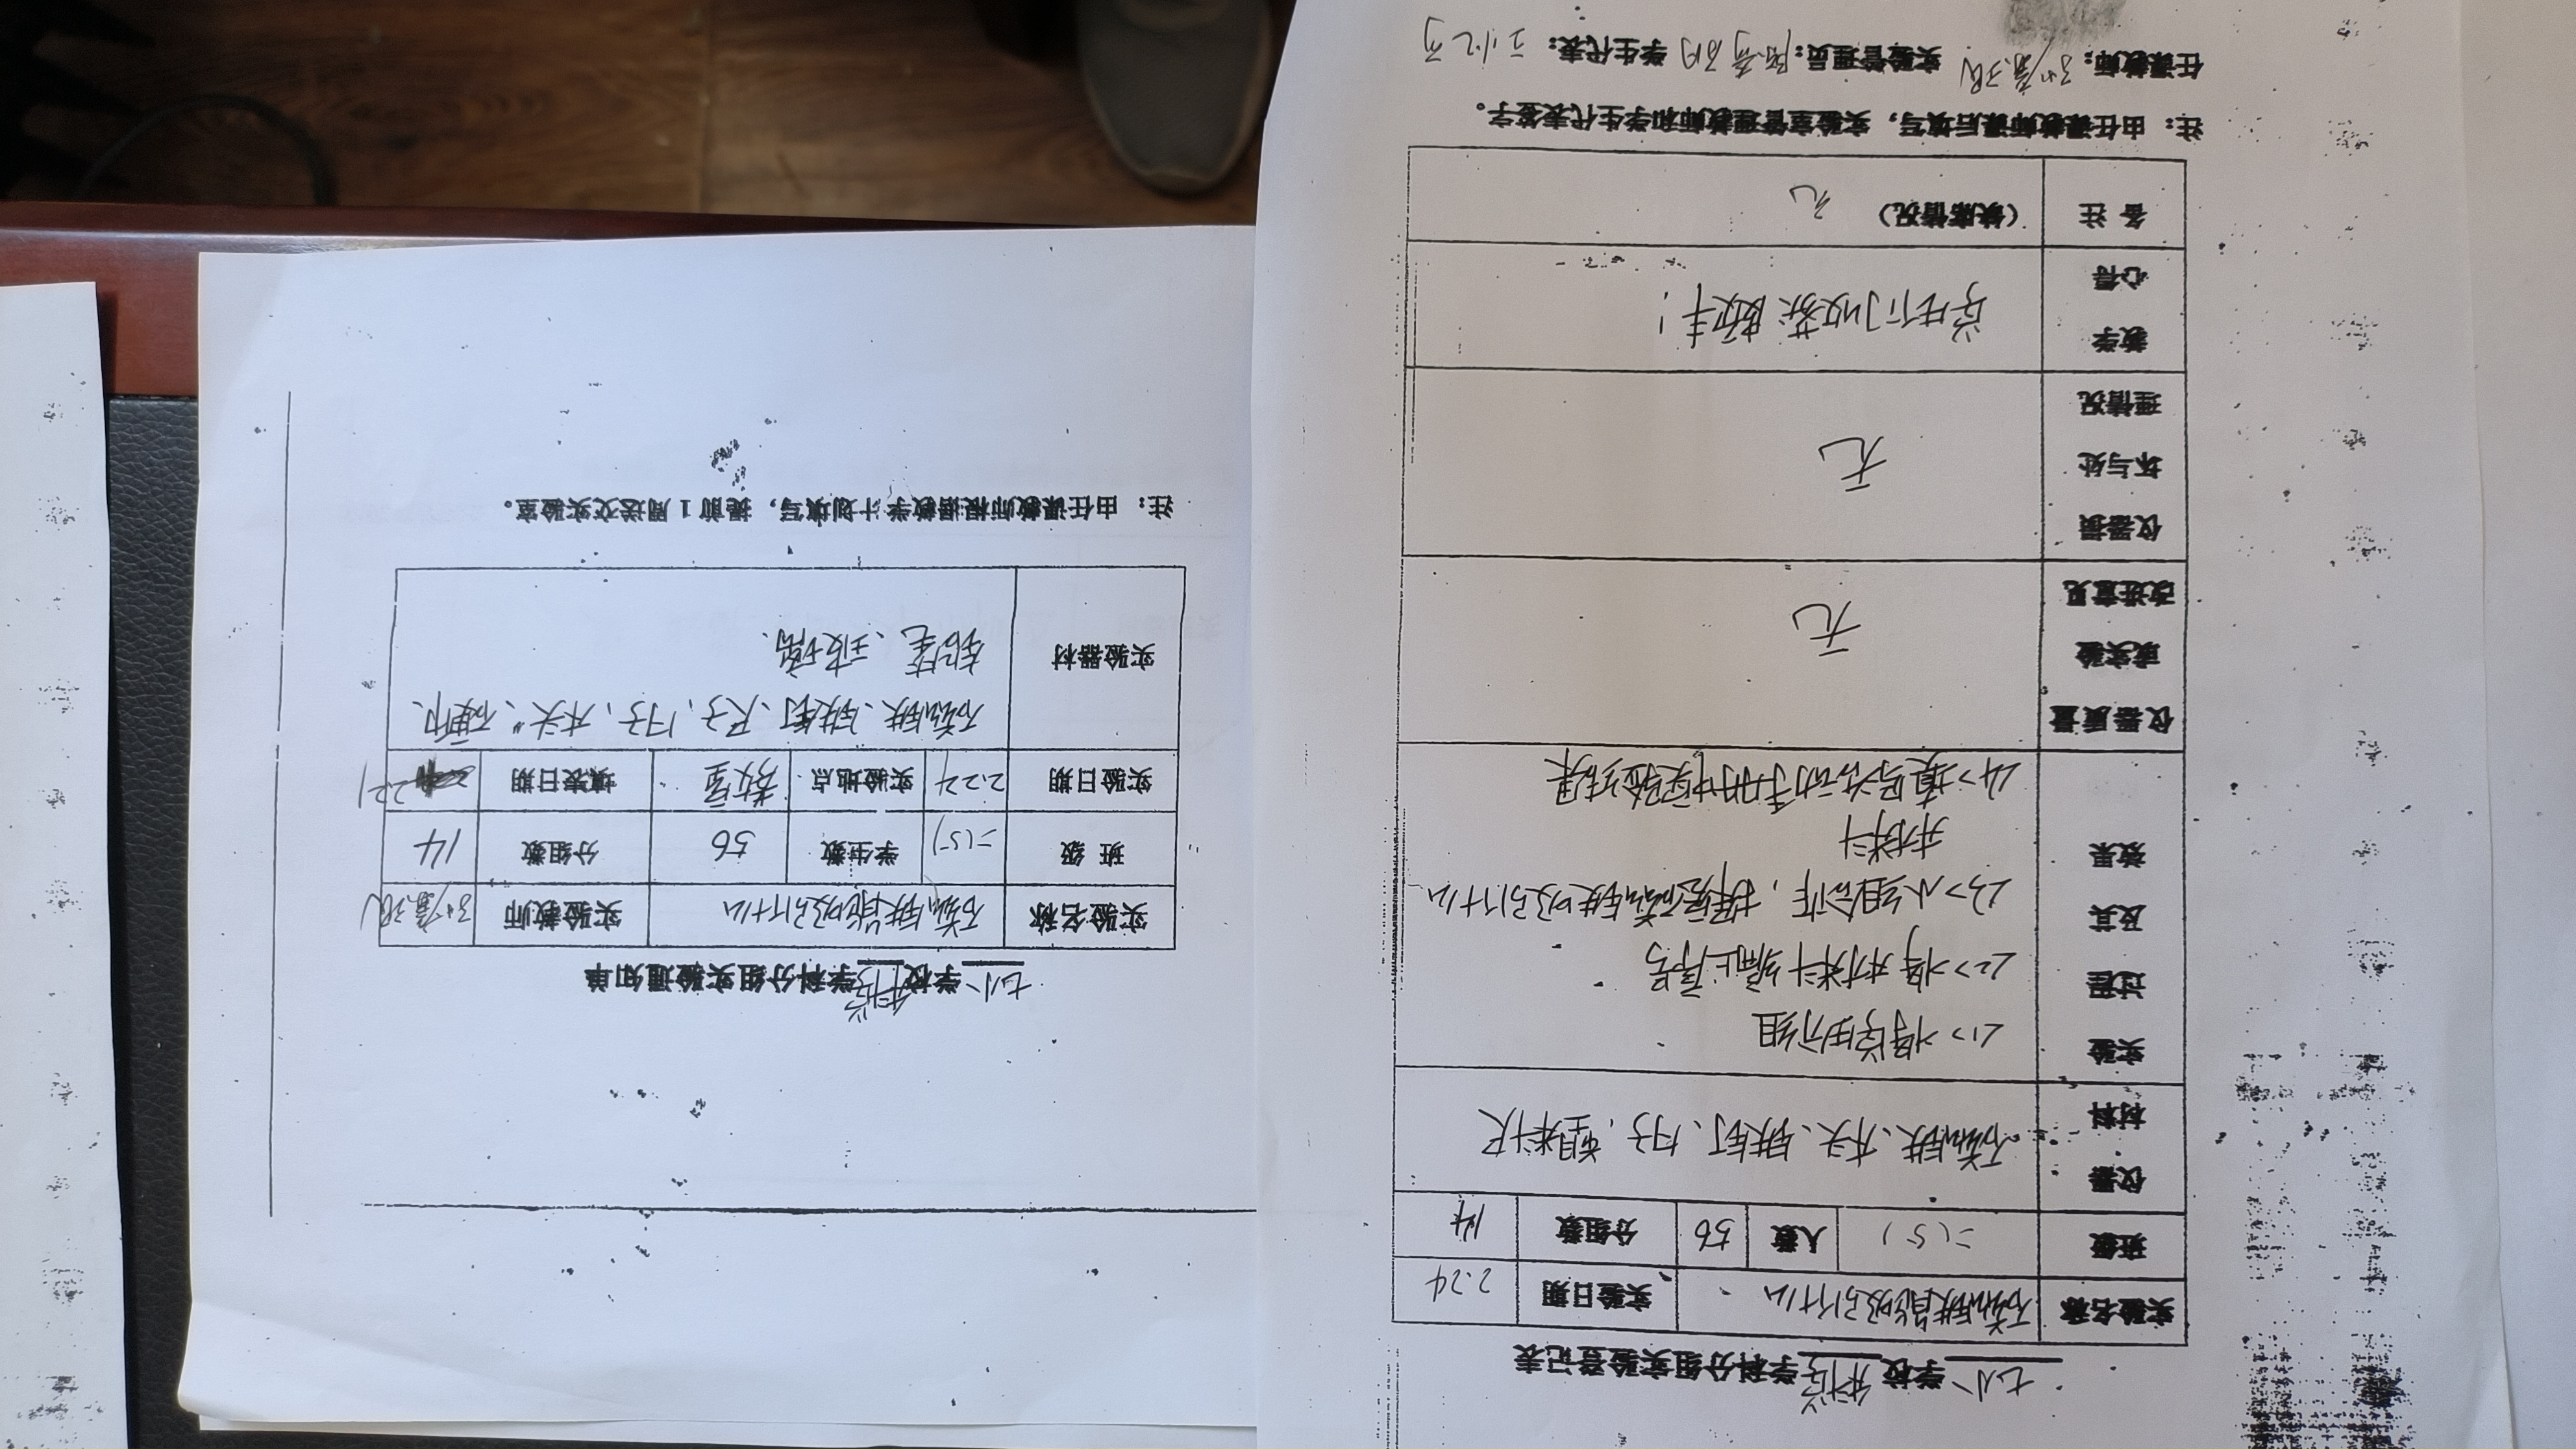 七小 学校 科学 学科分组实验通知单
实验名称 磁铁能吸引什么 实验教师
班 级 二(5) 学生数 56 分组数 14
实验日期 2.24 实验地点 教室 填表日期 2.21
实验器材 磁铁、铁钉、尺子、门子、木头、硬币、
铅笔、玻璃.
注：由任课教师根据教学计划填写，提前 1 周送交实验室。
七小 学校 科学 学科分组实验登记表
实验名称 磁铁能吸引什么 实验日期 2.24
班级 二(5) 人数 56 分组数 14
仪器材料 磁铁、木头、铁钉、门子，塑料尺
实验过程及其效果 <1>将学生分组
<2>将材料编上序号
<3>小组合作，探究磁铁吸引什么
材料
<4>填写活动手册中实验结果
仪器质量或实验改进意见 无
仪器损坏与处理情况 无
教学心得 学生们收获颇丰！
备 注 (缺席情况) 无
注：由任课教师课后填写，实验室管理教师和学生代表签字。
任课教师： 实验管理员： 学生代表：